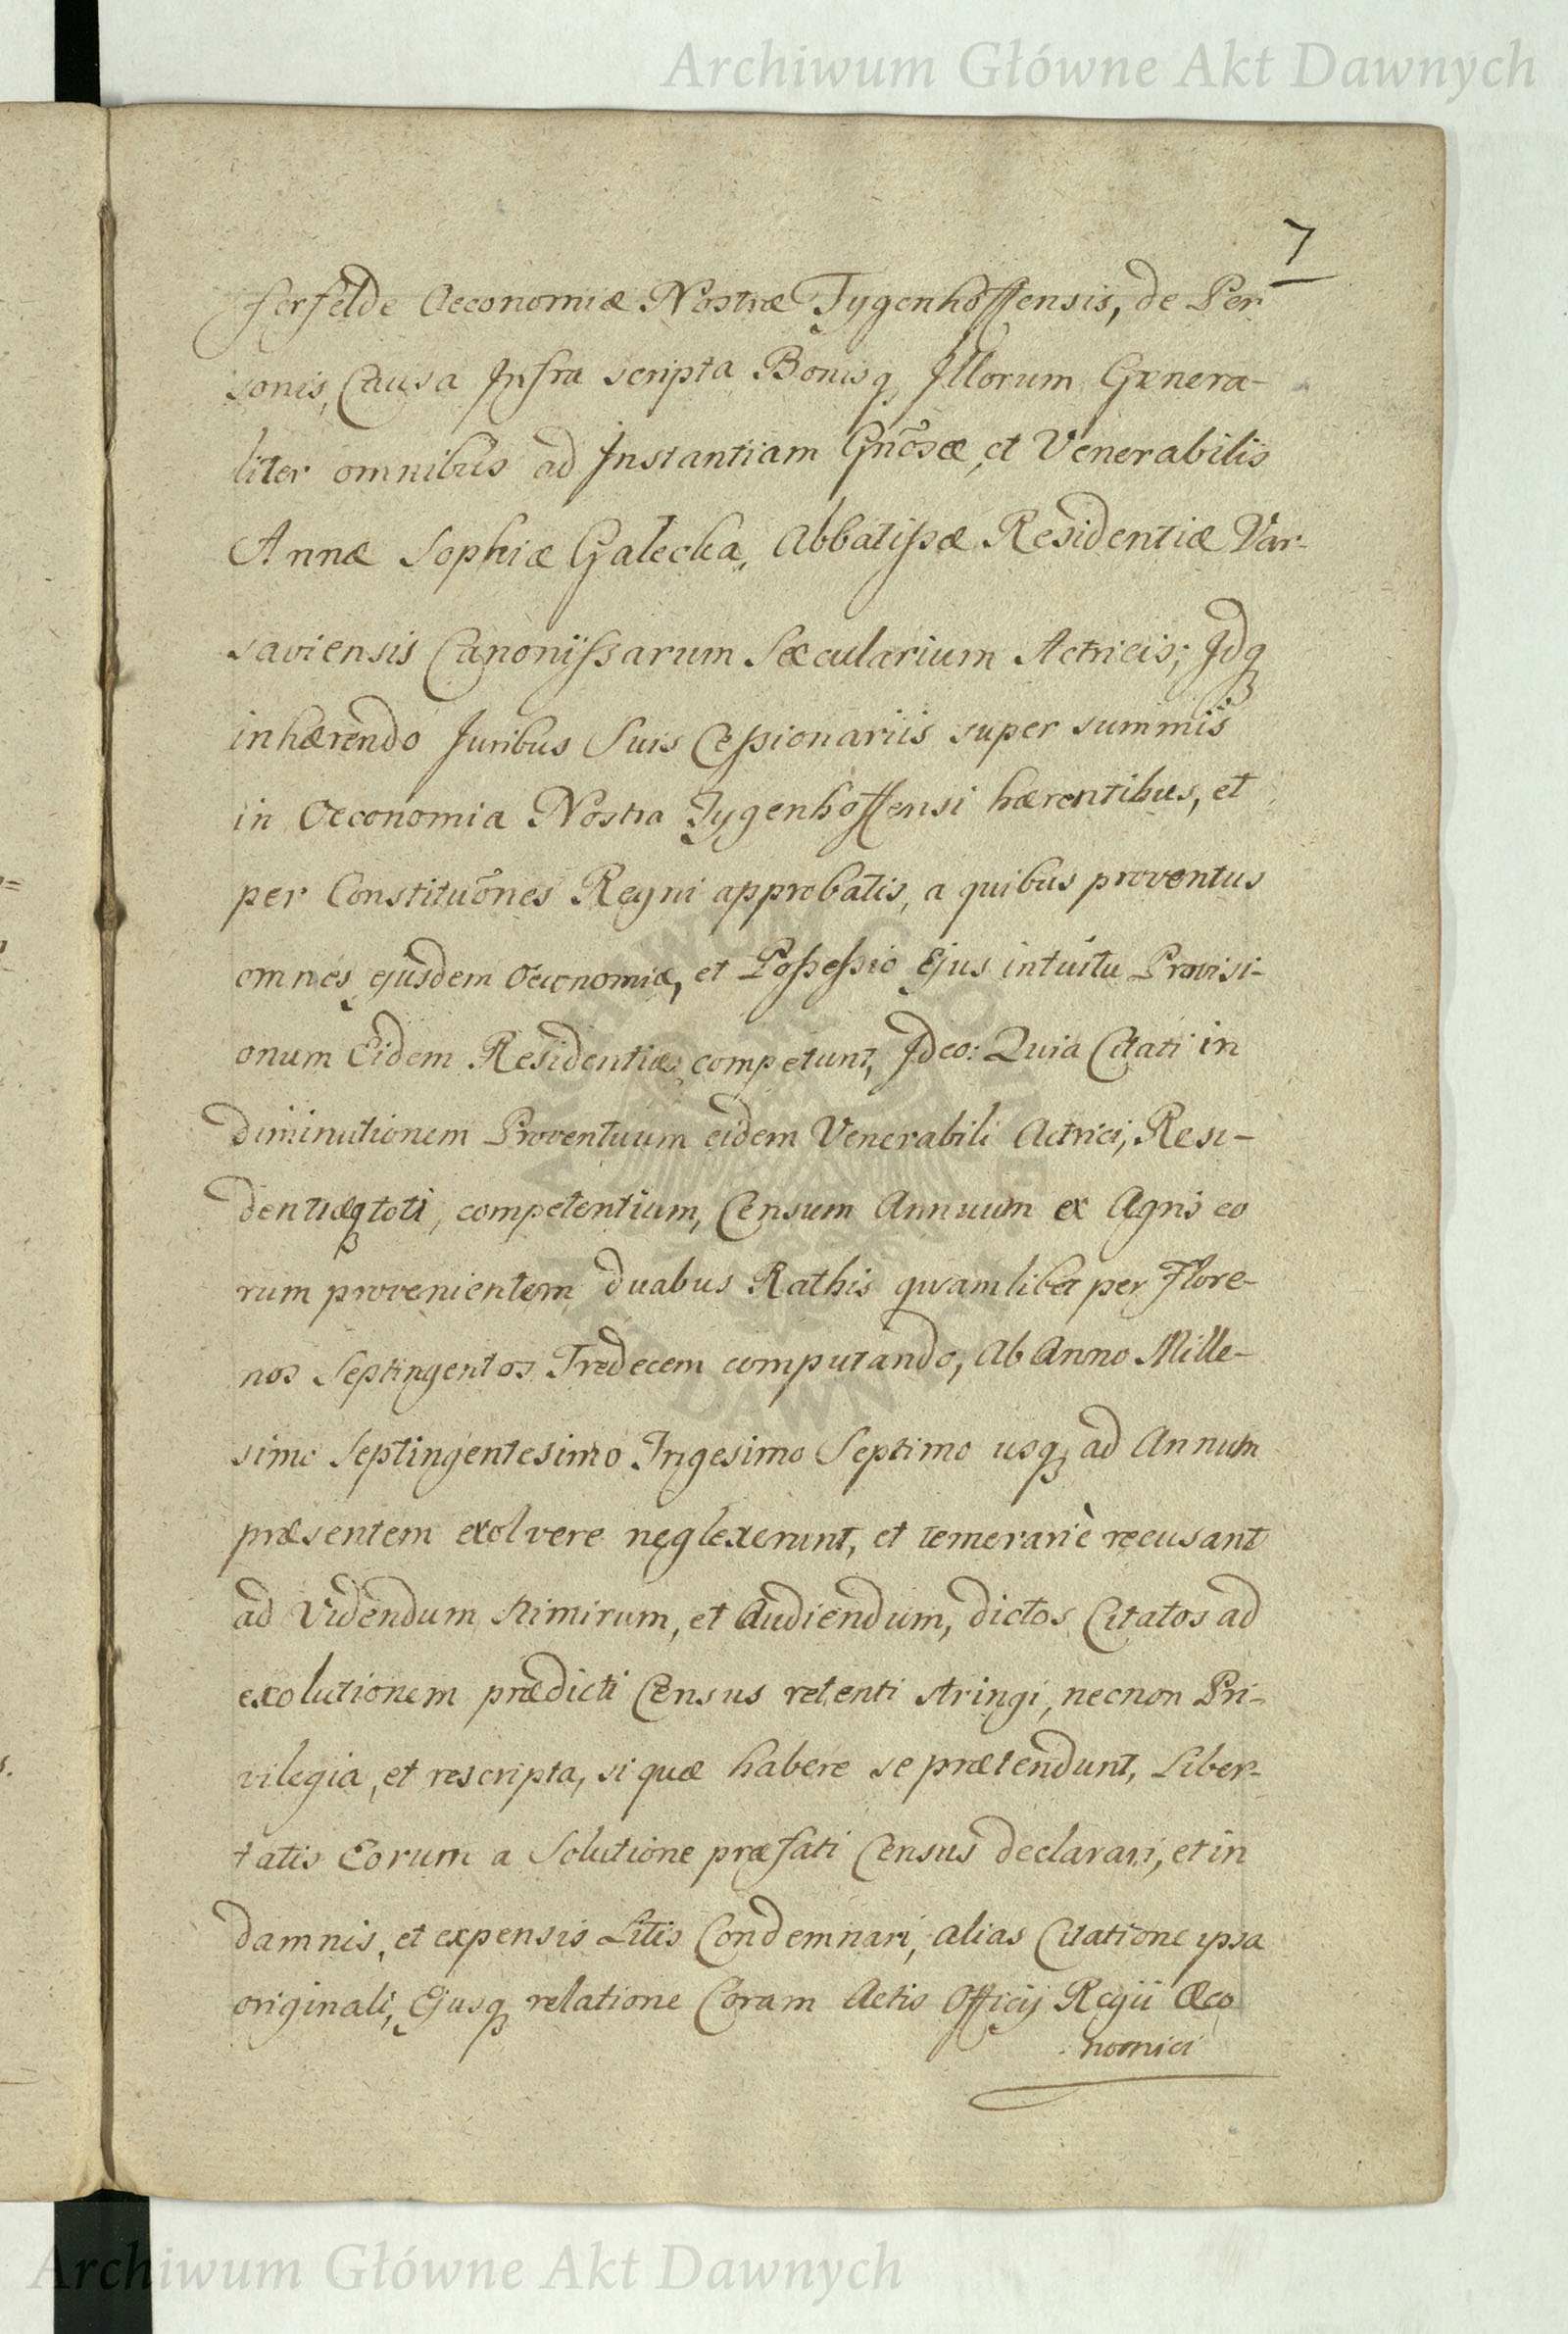 Archiwum Główne Akt Dawnych
7
ferfelde Oeconomiæ Nostræ Tygenhoffensis, de Per
sonis, Causa Infra scripta Bonisq Illorum Genera-
liter omnibus ad Instantiam Gnõsæ, et Venerabilis
Annæ Sophiæ Galecka, Abbatissæ Residentiæ Var-
saviensis Canonissarum Sæcularium Actricis; Idq
inhærendo Juribus Suis Cessionariis super summis
in Oeconomia Nostra Tygenhoffensi hærentibus, et
per Constituõnes Regni approbatis, a quibus proventus
omnes ejusdem Oeconomiæ, et Possessio Ejus intuitu Provisi-
onum Eidem Residentiæ competunt, Ideo: Quia Citati in
diminutionem Proventuum eidem Venerabili Actrici, Resi-
dentiæq toti, competentium, Censum Annuum ex Agris eo
rum provenientem duabus Rathis quamlibet per Flore-
nos Septingentos Tredecem computando, Ab Anno Mille-
simo Septingentesimo Trigesimo Septimo usq ad Annum
præsentem exolvere neglexerunt, et temerariè recusant
ad Videndum Nimirum, et Audiendum, dictos Citatos ad
exolutionem prædicti Census retenti stringi, necnon Pri-
vilegia, et rescripta, si quæ habere se prætendunt, Liber-
tatis Eorum a Solutione præfati Census declarari, et in
damnis, et expensis Litis Condemnari, alias Citatione ipsa
originali, Ejusq relatione Coram Actis Officij Regii Œco
nomici
Archiwum Główne Akt Dawnych